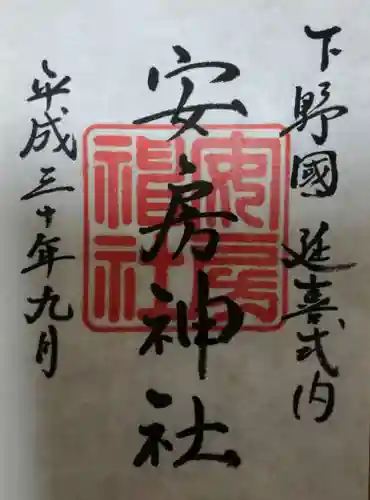 下野國 延喜式内
安房神社
安房神社
平成三十年九月